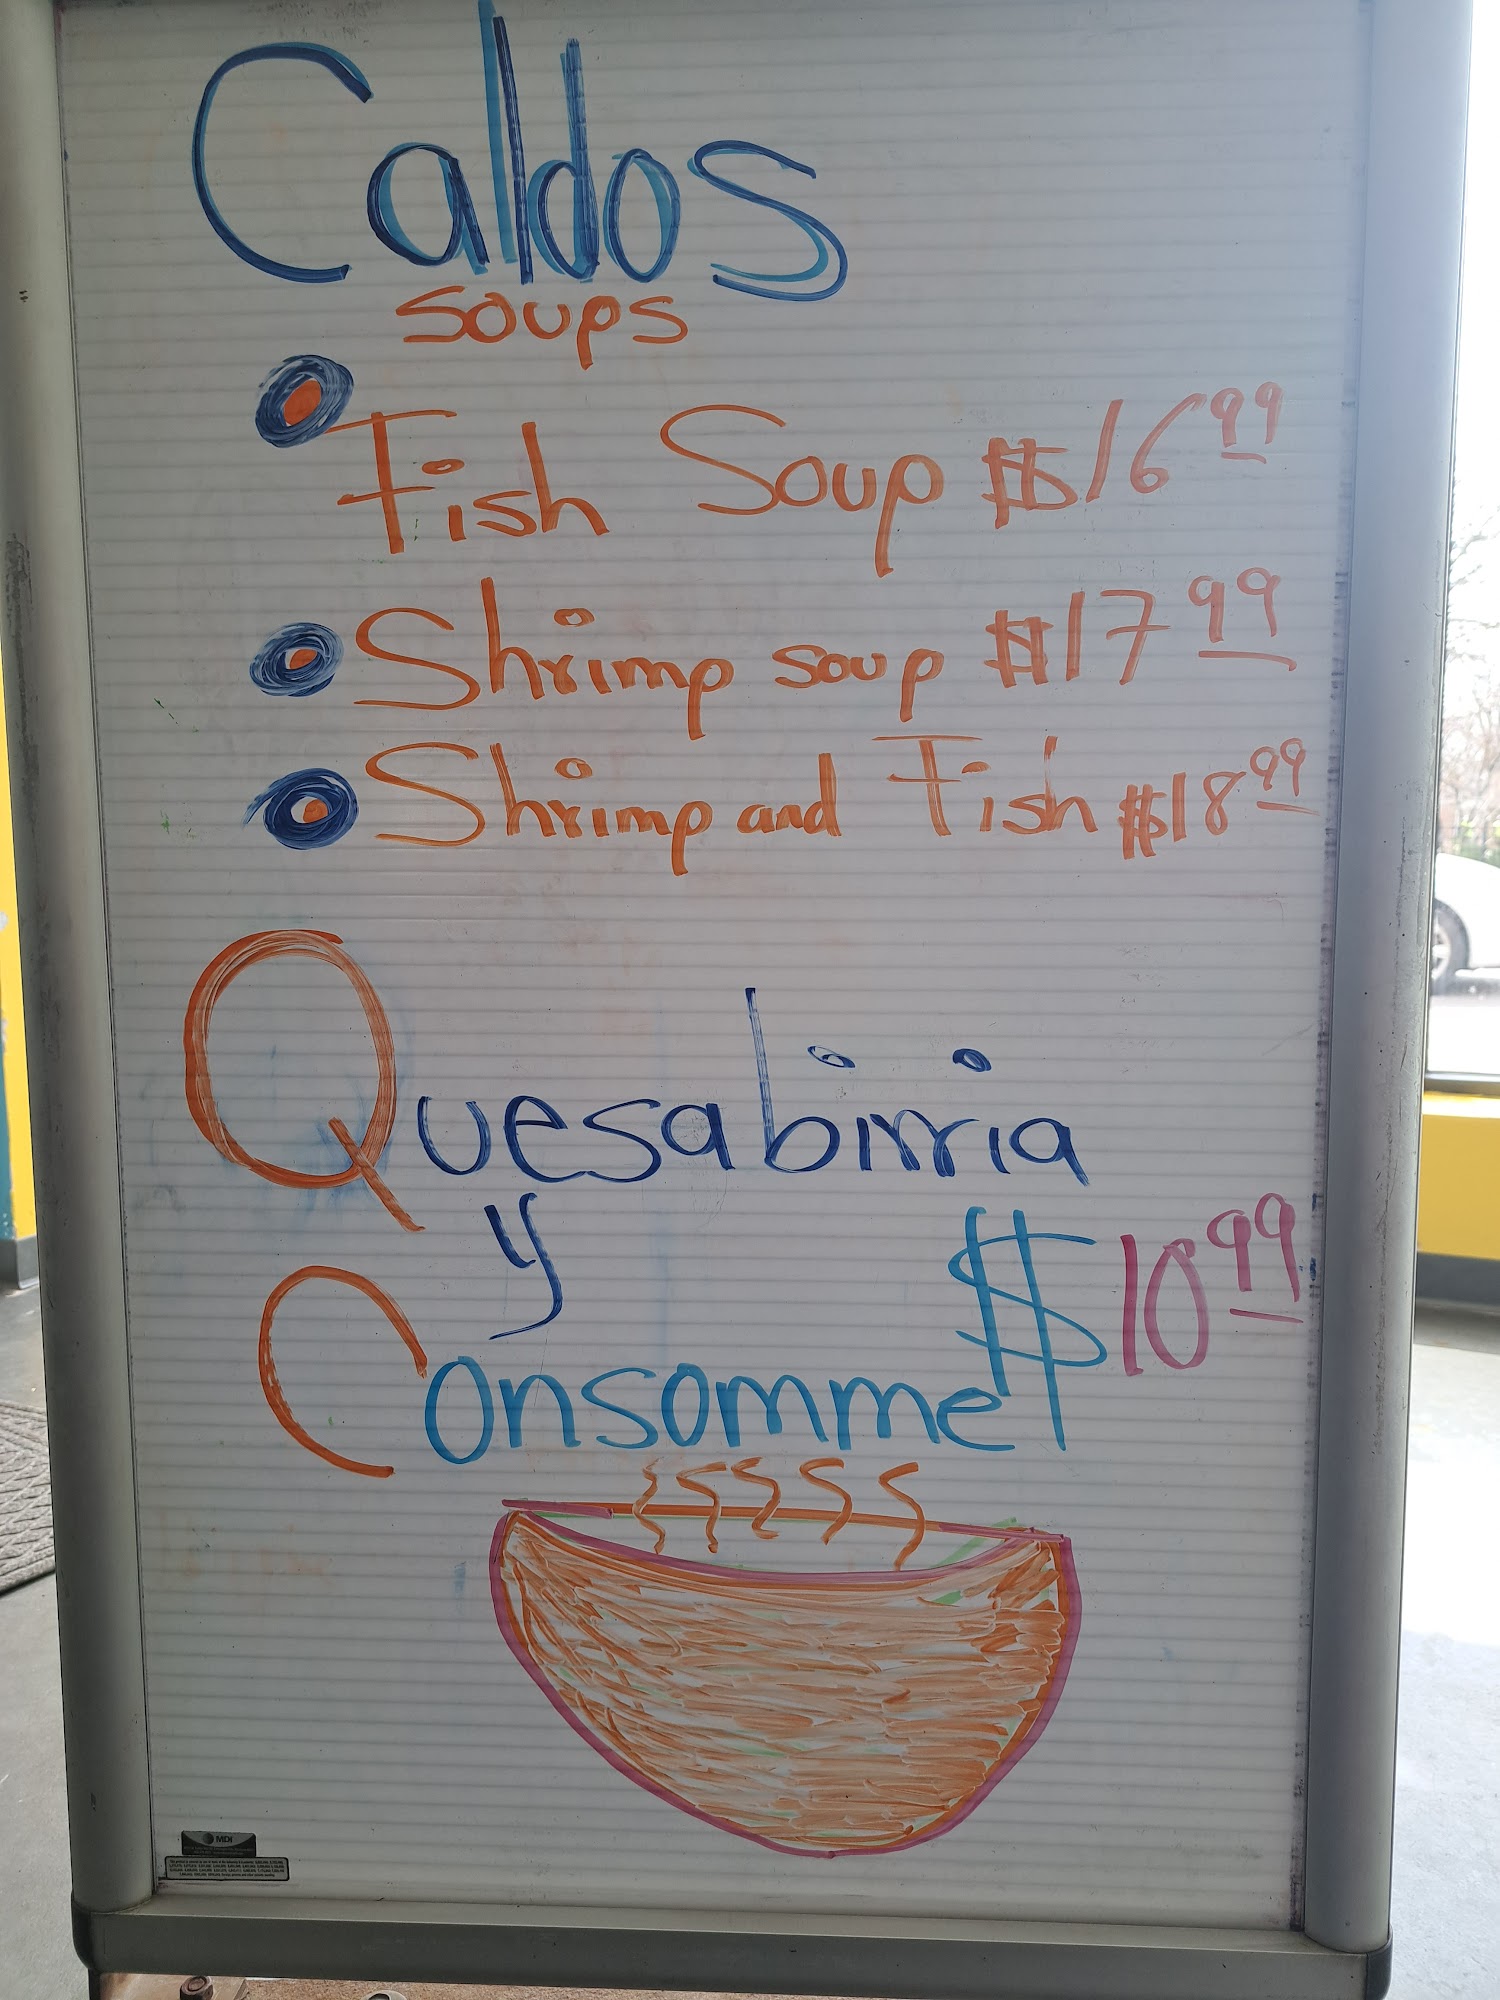 Caldos
soups
Fish Soup $16 99
Shrimp soup $17 99
Shrimp and Fish $18 99
Quesabirria
y
Consomme $10 99
MDI